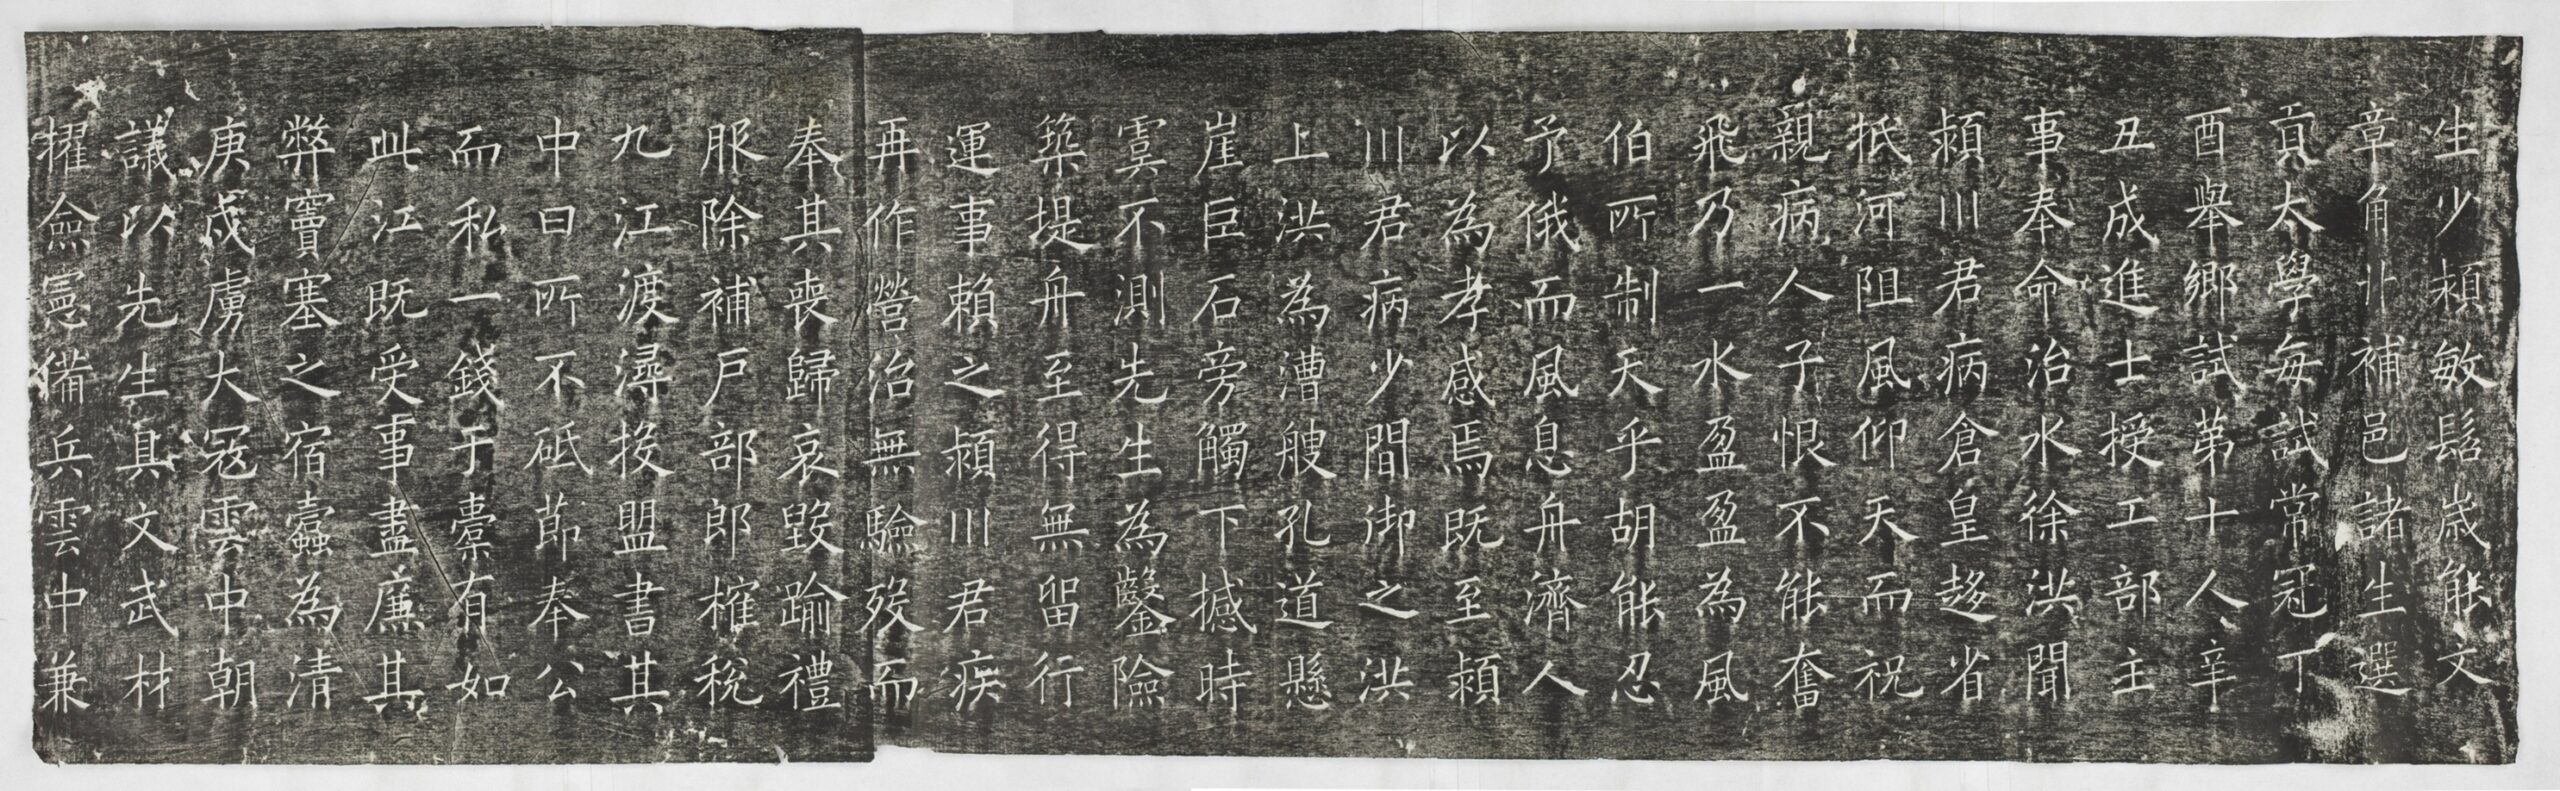 生少穎敏髫歲能文
章角丱補邑諸生選
貢太學每試常冠丁
酉舉鄉試第十人辛
丑成進士授工部主
事奉命治水徐洪聞
潁川君病倉皇趍省
抵河阻風仰天而祝
親病人子恨不能奮
飛乃一水盈盈為風
伯所制天乎胡能忍
予俄而風息舟濟人
以為孝感焉既至潁
川君病少間御之洪
上洪為漕艘孔道懸
崖巨石旁觸下撼時
虞不測先生為鑿險
築堤舟至得無留行
運事賴之潁川君疾
再作營治無驗歿而
奉其喪歸哀毀踰禮
服除補戶部郎榷稅
九江渡潯投盟書其
中曰所不砥節奉公
而私一錢于橐有如
此江既受事盡廉其
弊竇塞之宿蠹為清
庚戌虜大寇雲中朝
議以先生具文武材
擢僉憲備兵雲中兼